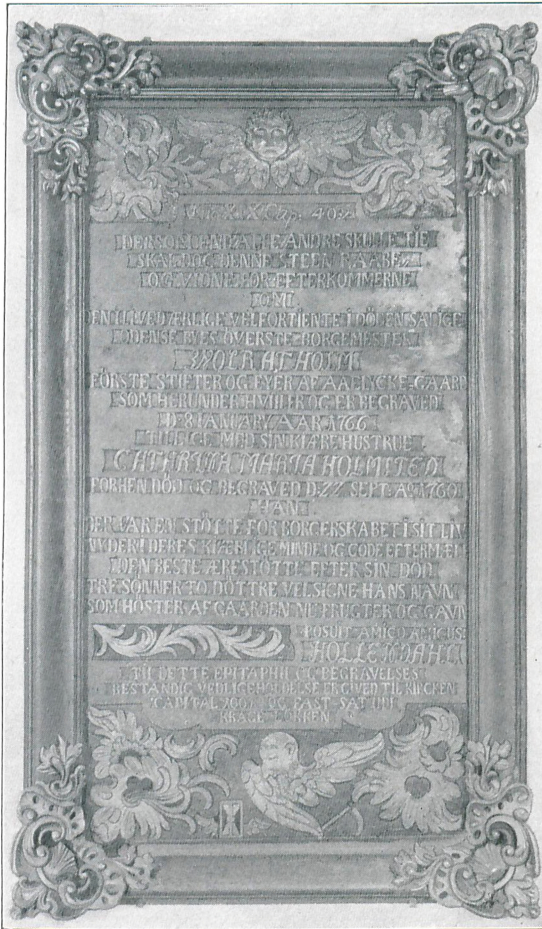 Cap: 40 v:
DERSOM END ALLE ANDRE SKULLE TIE
SKAL DOG DENNE STEEN RAABE
OG VIDNE FOR EFTERKOMMERNE
OM
DEN I LIVE VELFORTIENTE I DÖDEN SALIGE
ODENSE BYES ÖVERSTE BORGEMESTER
WOLRAT HOLM
FÖRSTE STIFTER OG EYER AF AAELYCKE GAARD
SOM HERUNDER HVILER OG ER BEGRAVED
D 8 IANUARY AAR 1766
TILLIGE MED SIN KIÆRE HUSTRUE
CATHRINA MARIA HOLM
FORHEN DÖD OG BEGRAVED D. 22 SEPT. A. 1760
HAN
DER VAR EN STÖTTE FOR BORGERSKABET I SIT LIV
NYDER I DERES KIÆRLIGE MINDE OG GODE EFTERMÆLE
DEN BESTE ÆRESTÖTTE EFTER SIN DÖD
TRE SÖNNER TO DÖTTRE VELSIGNE HANS NAVN
SOM HÖSTER AF GAARDEN NU FRUGTER OG GAVN
POSUIT AMICO AMICUS
HOLLEN DAHL
TIL DETTE EPITAPHII OG BEGRAVELSES
BESTANDIG VEDLIGEHOLDELSE ER GIVED TIL KIRCKEN
CAPITAL OG FAST SAT UDI
KIRCKEN